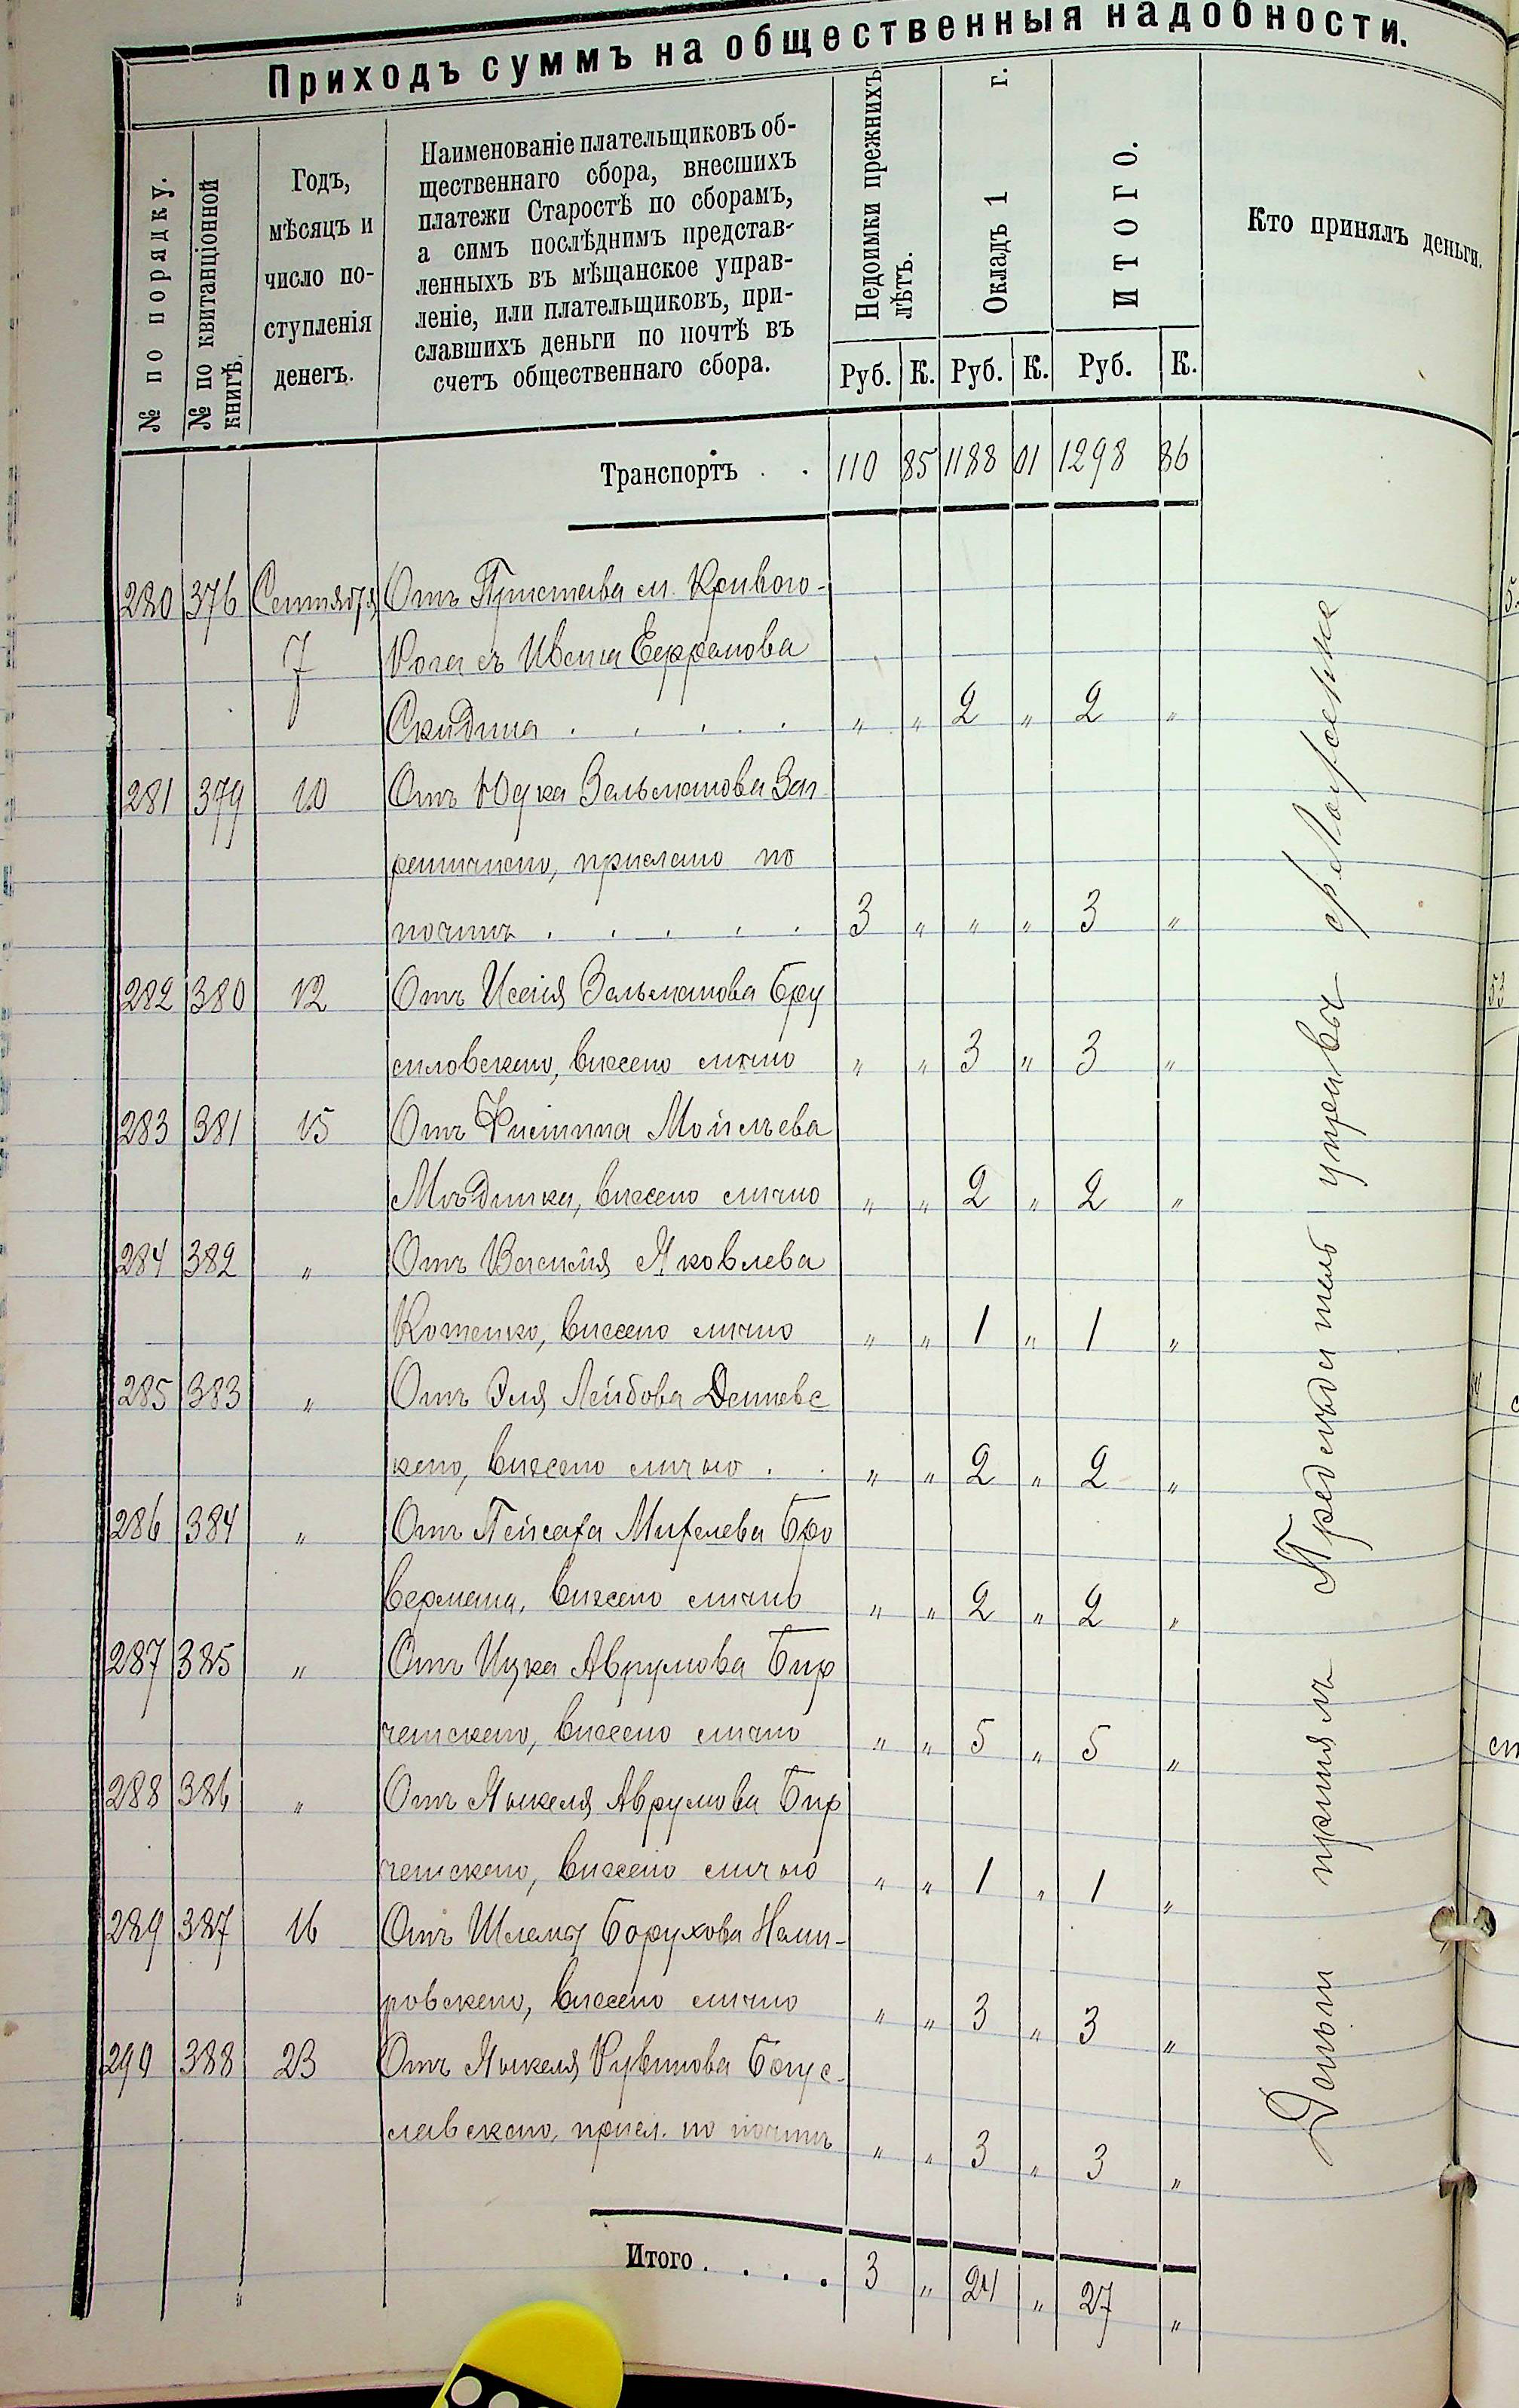 Приходъ суммъ на общественныя надобности.
№ по порядку.
№ по квитанціонной книгѣ.
Годъ,
мѣсяцъ и
число по-
ступленія
денегъ.
Наименованіе плательщиковъ об-
щественнаго сбора, внесшихъ
платежи Старостѣ по сборамъ,
а симъ послѣднимъ представ-
ленныхъ въ мѣщанское управ-
леніе, или плательщиковъ, при-
славшихъ деньги по почтѣ въ
счетъ общественнаго сбора.
Недоимки прежнихъ
лѣтъ.
Окладъ 1 г.
ИТОГО.
Кто принялъ деньги.
Руб. К. Руб. К. Руб. К.
Транспортъ . . 110 85 1188 01 1298 86
280 376 Сентября Отъ Пристава м. Кривого-
7 Рога съ Ивана
Скидина . . . . . " " 2 " 2 "
281 379 10 Отъ Юдка Зельманова Заг
но, прислано по
почтѣ . . . . . 3 " " " 3 "
282 380 12 Отъ Исаія Зельманова Бру
силовскаго, внесено лично " " 3 " 3 "
283 381 15 Отъ Мойсѣева
Мѣдника, внесено лично " " 2 " 2 "
284 382 " Отъ Василія Яковлева
Котенко, внесено лично " " 1 " 1 "
285 383 " Отъ Эля Лейбова
каго, внесено лично . . " " 2 " 2 "
286 384 " Отъ Пейсаха Михелева Бро
вермана, внесено лично " " 2 " 2 "
287 385 " Отъ Ицка Аврумова Бир
ченскаго, внесено лично " " 5 " 5 "
288 386 " Отъ Янкеля Аврумова Бир
ченскаго, внесено лично " " 1 " 1 "
289 387 16 Отъ Шлемы Борухова Неми-
ровскаго, внесено лично " " 3 " 3 "
290 388 23 Отъ Янкеля Рувинова Богус-
лавскаго, присл. по почтѣ " " 3 " 3 "
Итого . . . . 3 " 24 " 27 "
Деньги принялъ Предсѣдатель управы